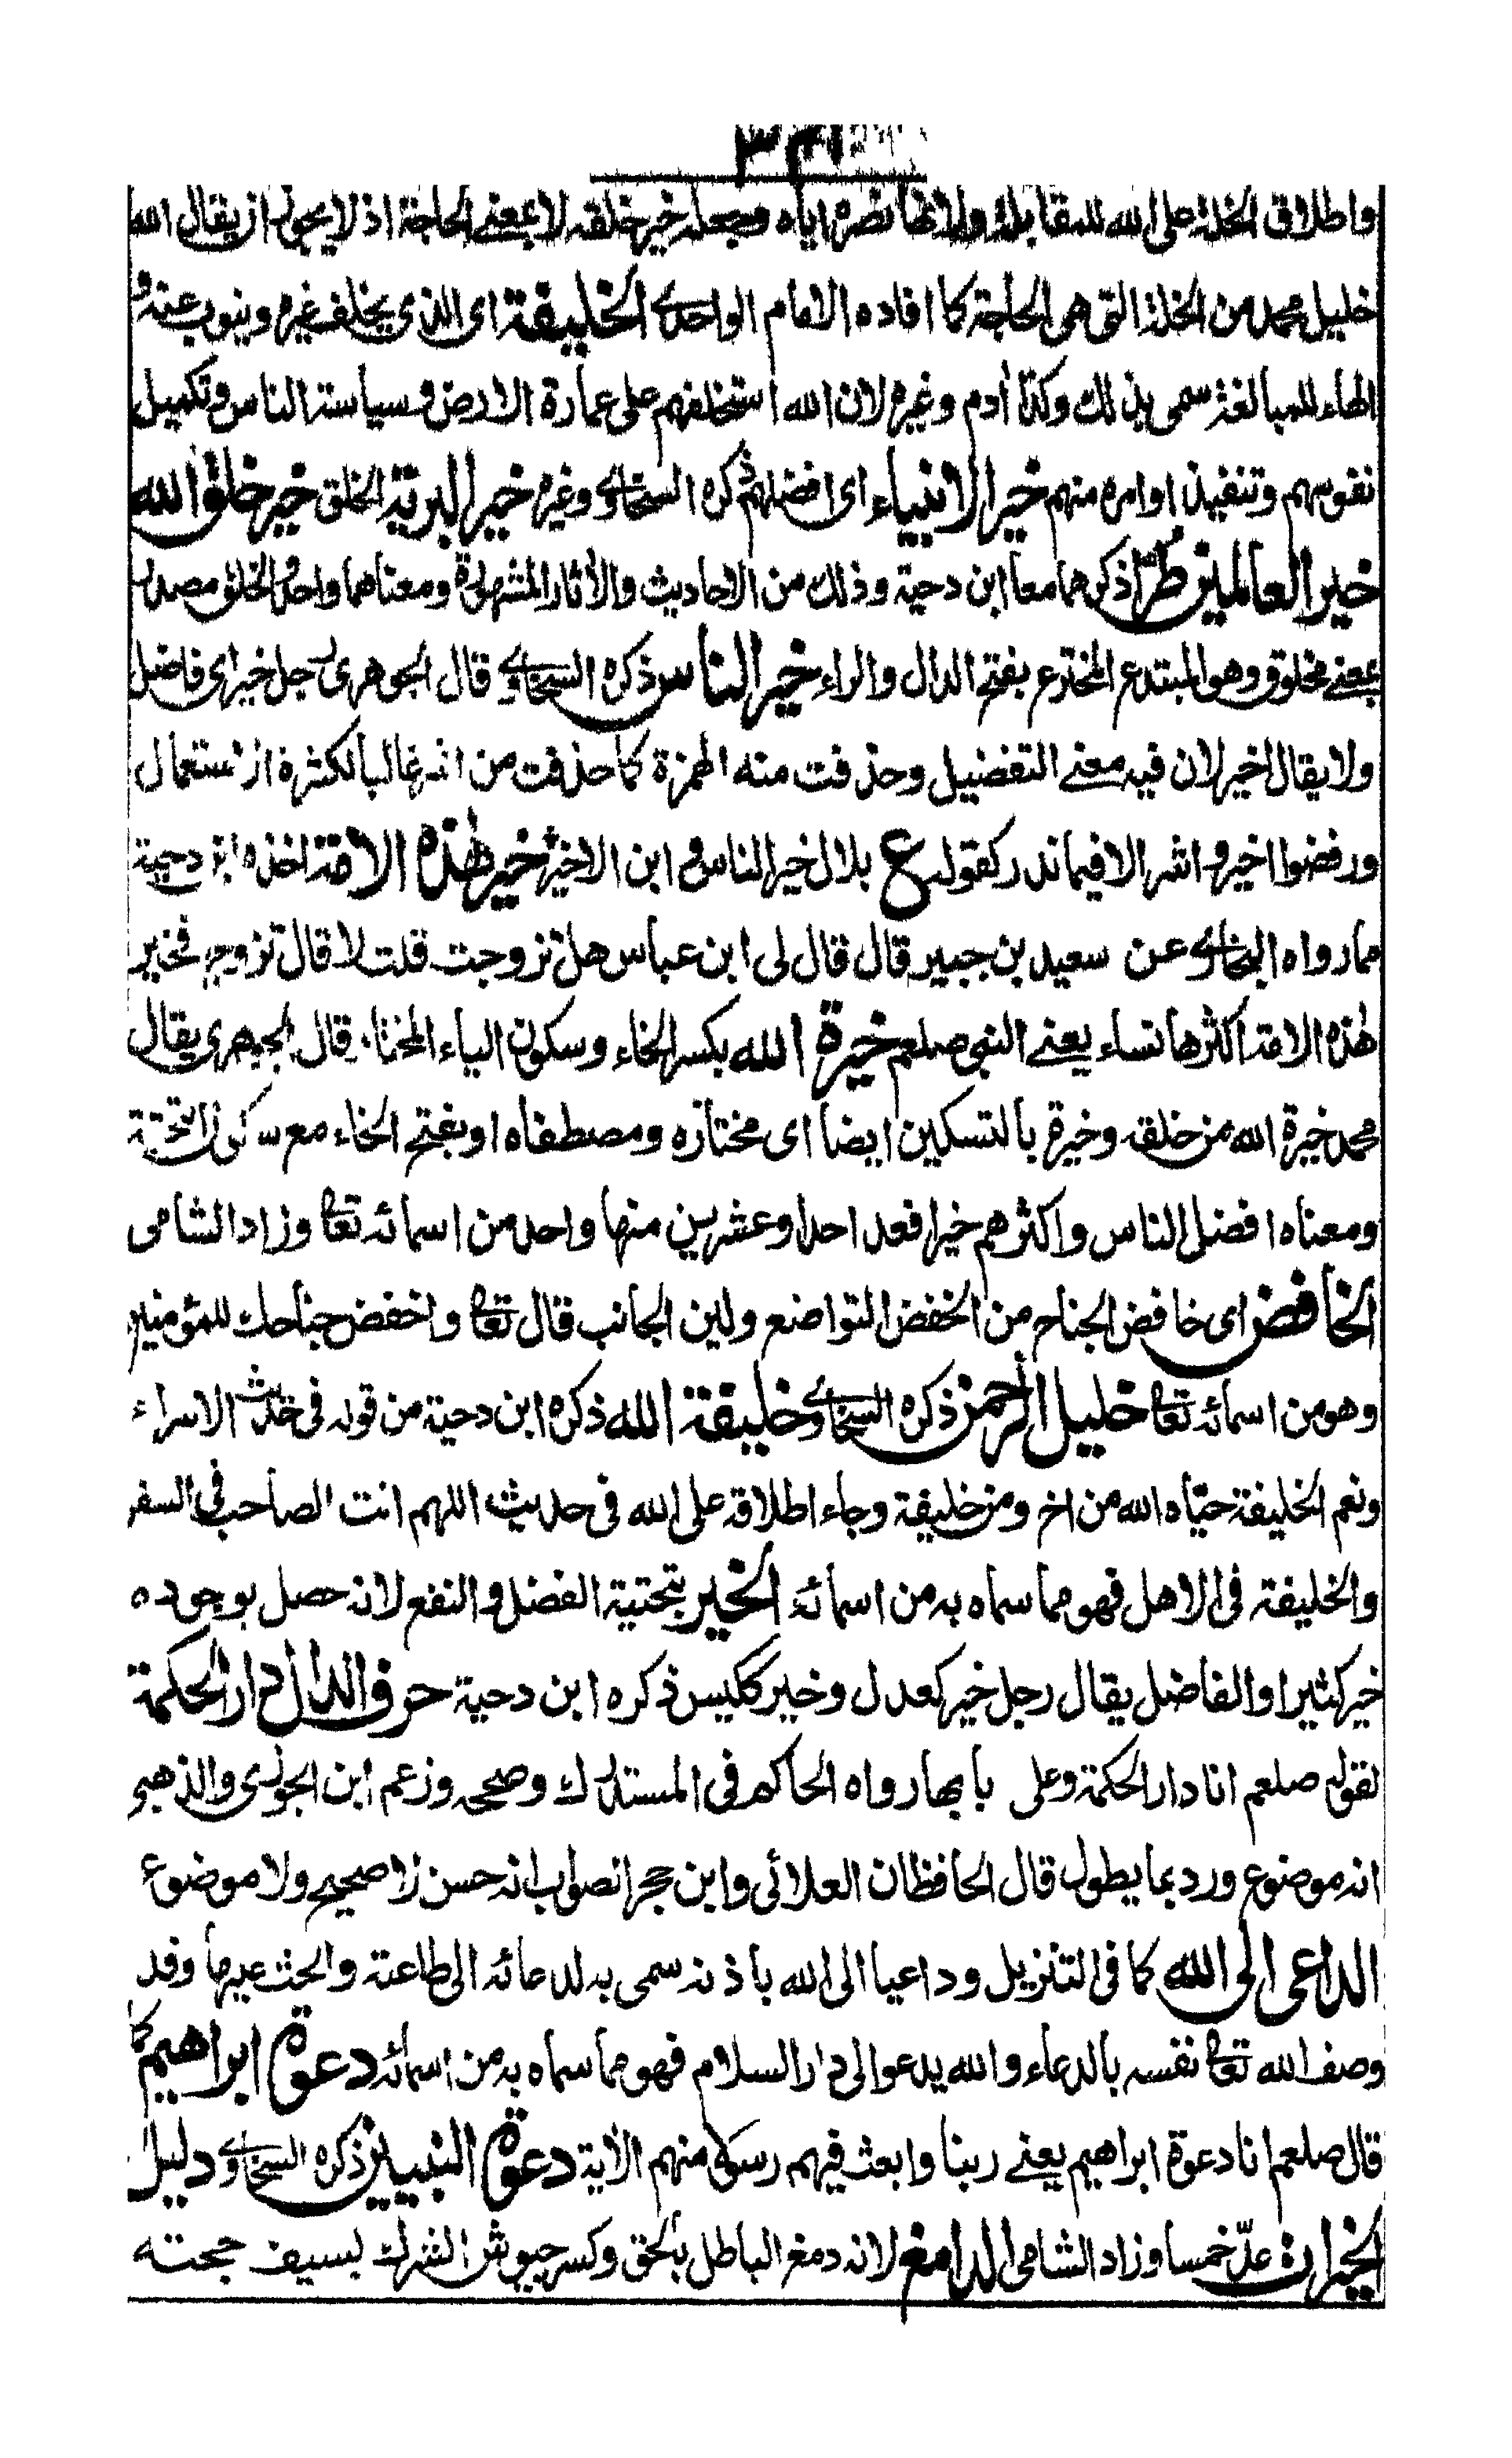 واطلاق الخلة على الله للمقابلة ولانها نصره اياه وجعله خير خلقه لا بمعنے الحاجة اذ لا يجوز ان يقال الله
خليل محمد من الخلة التى هى الحاجة كما افاده الامام الواحدى الخليفة اى الذى يخلف غيره وينوب عنه و
الهاء للمبالغة سمى بذلك وكذا أدم وغيره لان الله استخلفهم على عمارة الارض وسياسة الناس وتكميل
نفوسهم وتنفيذ اوامره منهم خير الانبياء اى افضلهم ذكره السخاوى وغيره خير البرية الخلق خير خلق الله
خير العالمين طرّا ذكرهما معا ابن دحية وذلك من الاحاديث والأثار المشهورة ومعناهما واحد الخلق مصدر
بمعنے مخلوق وهو المبتدع المخترع بفتح الدال والراء خير الناس ذكره السخاوى قال الجوهرى رجل خير اى فاضل
ولا يقال اخير لان فيه معنے التفضيل وحذفت منه الهمزة كما حذفت من اشر غالبا لكثرة الاستعمال
ورفضوا اخير واشر الا فيما ندر كقوله ع بلال خير الناس وابن الاخير خير هذه الامة اخذه ابن دحية
مما رواه البخارى عن سعيد بن جبير قال قال لى ابن عباس هل تزوجت قلت لا قال تزوج فخير
هذه الامة اكثرها نساء يعنے النبى صلعم خيرة الله بكسر الخاء وسكون الياء المختار قال الجوهرى يقال
محمد خيرة الله من خلقه وخيرة بالتسكين ايضا اى مختاره ومصطفاه او بفتح الخاء مع سكون التحتية
ومعناه افضل الناس واكثرهم خيرا فعد احدا وعشرين منها واحد من اسمائه تعا وزاد الشامى
الخافض اى خافض الجناح من الخفض التواضع ولين الجانب قال تعا واخفض جناحك للمؤمنين
وهو من اسمائه تعا خليل الرحمن ذكره السخاوى خليفة الله ذكره ابن دحية من قوله فى حديث الاسراء
ونعم الخليفة حيّاه الله من اخ ومن خليفة وجاء اطلاقه على الله فى حديث اللهم انت الصاحب فى السفر
والخليفة فى الاهل فهو مما سماه به من اسمائه الخير بتحتية الفضل والنفع لانه حصل بوجوده
خير كثير او الفاضل يقال رجل خير كعدل وخير ككيس ذكره ابن دحية حرف الدال دار الحكمة
لقوله صلعم انا دار الحكمة وعلى بابها رواه الحاكم فى المستدرك وصححه وزعم ابن الجوزى والذهبى
انه موضوع ورد بما يطول قال الحافظان العلائى وابن حجر الصواب انه حسن لا صحيح ولا موضوع
الداعى الى الله كما فى التنزيل وداعيا الى الله باذنه سمى به لدعائه الى طاعته والحث عليها وقد
وصف الله تعا نفسه بالدعاء والله يدعو الى دار السلام فهو مما سماه به من اسمائه دعوة ابراهيم كما
قال صلعم انا دعوة ابراهيم يعنے ربنا وابعث فيهم رسولا منهم الأية دعوة النبيين ذكره السخاوى دليل
الخيرات عدّ خمسا وزاد الشامى الدامغ لانه دمغ الباطل بالحق وكسر جيوش الشرك بسيف حجته